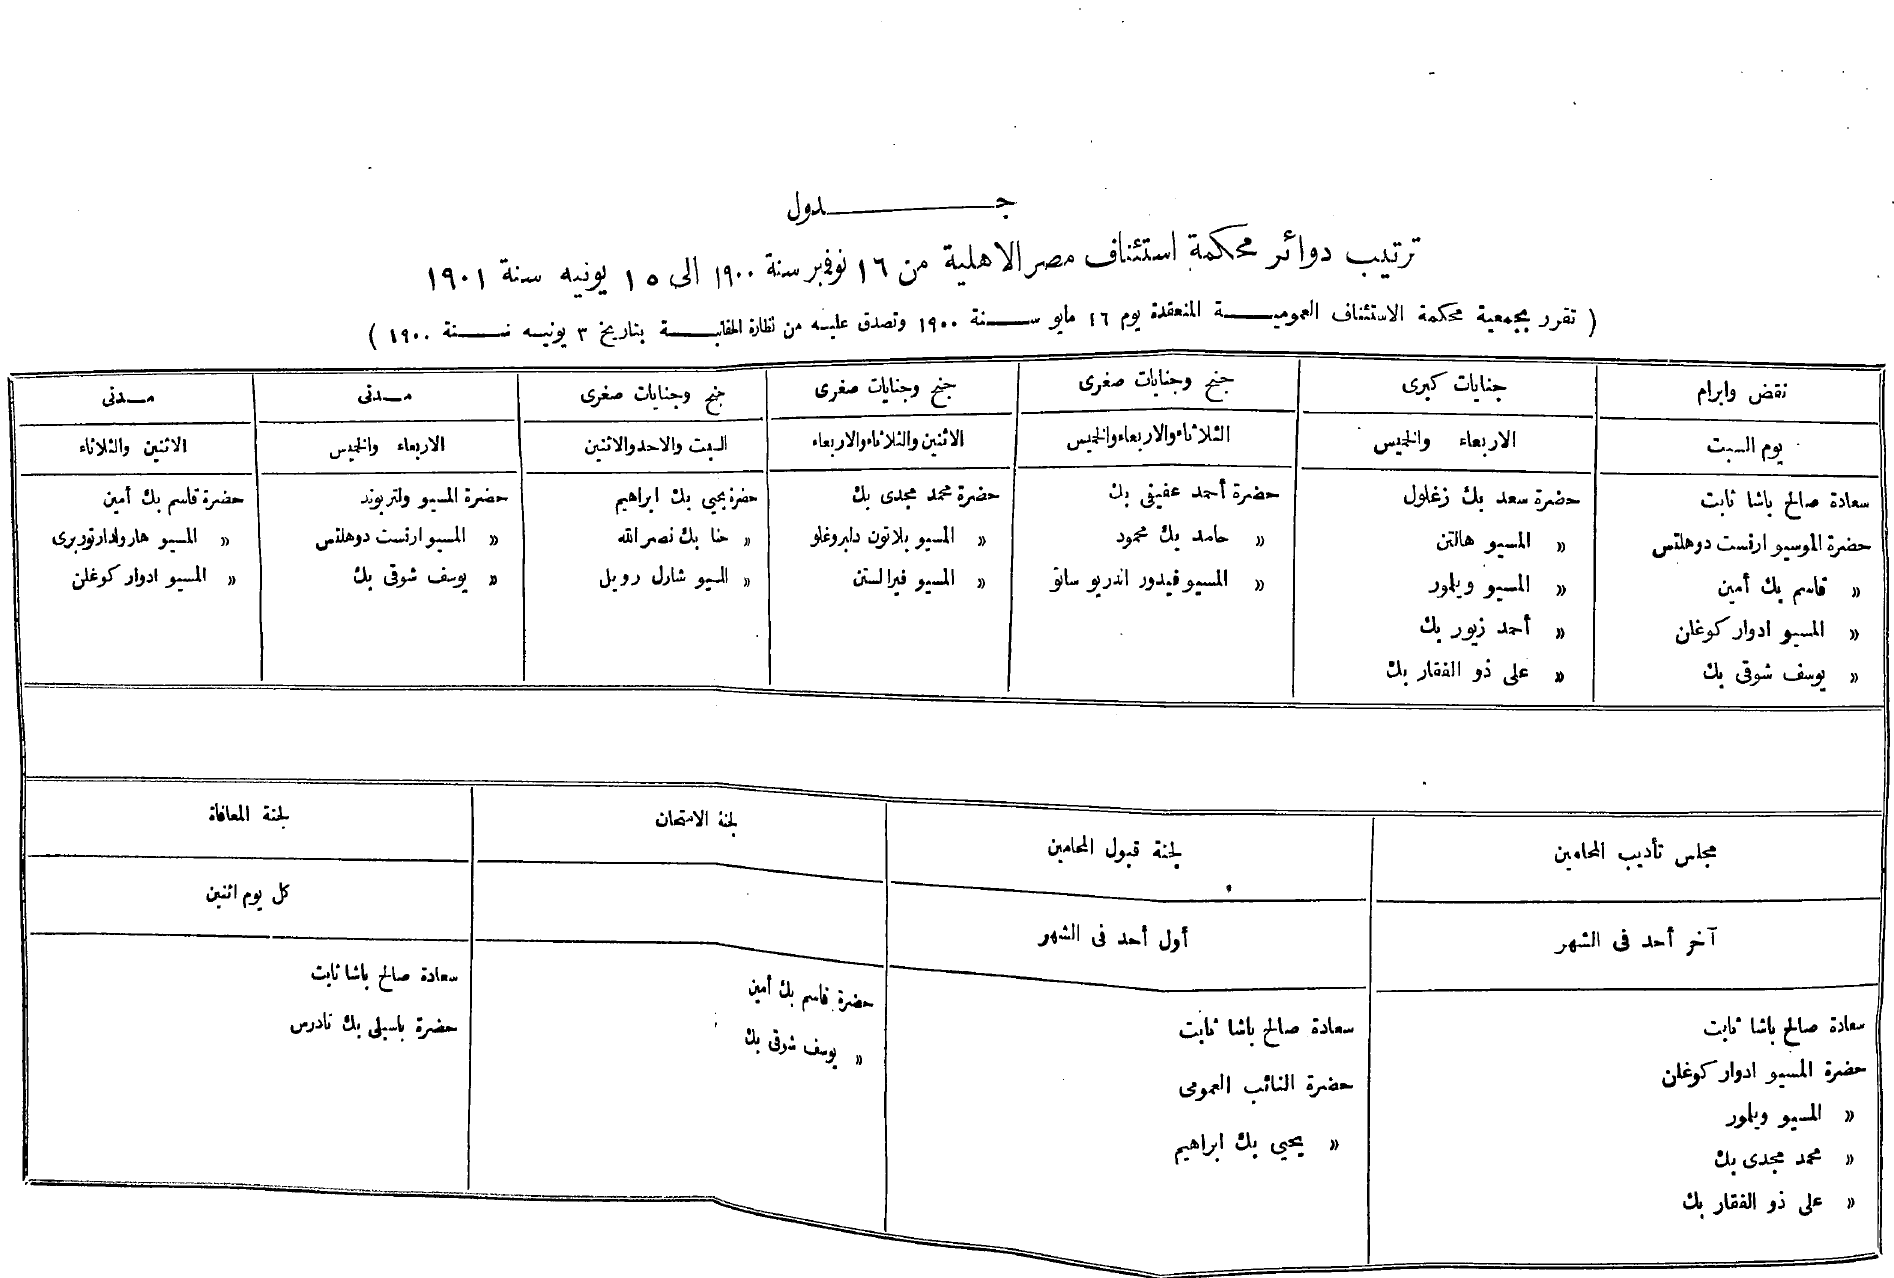 جدول
ترتيب دوائر محكمة استئناف مصر الاهلية من ١٦ نوفبر سنة ١٩٠٠ الى ١٥ يونيه سنة ١٩٠١
( تقرر بجمعية محكمة الاستئناف العمومية المنعقدة يوم ١٦ مايو سنة ١٩٠٠ وتصدق عليه من نظارة الحقانية بتاريخ ٣ يونيه سنة ١٩٠٠ )
نقض وابرام
يوم السبت
سعادة صالح باشا ثابت
حضرة الموسيو ارنست دوهلتس
« قاسم بك أمين
« المسيو ادوار كوغلن
« يوسف شوقى بك
جنايات كبرى
الاربعاء والخميس
حضرة سعد بك زغلول
« المسيو هالتن
« المسيو ويلمور
« أحمد زيور بك
« على ذو الفقار بك
جنح وجنايات صغرى
الثلاثاء والاربعاء والخميس
حضرة أحمد عفيفى بك
« حامد بك محمود
« المسيو فيدور اندريو سانو
جنح وجنايات صغرى
الاثنين والثلاثاء والاربعاء
حضرة محمد مجدى بك
« المسيو بلاتون دابروغلو
« المسيو فيرالستن
جنح وجنايات صغرى
السبت والاحد والاثنين
حضرة يحيى بك ابراهيم
« حنا بك نصر الله
« المسيو شارل رويل
مدنى
الاربعاء والخميس
حضرة المسيو ولتربوند
« المسيو ارنست دوهلتس
« يوسف شوقى بك
مدنى
الاثنين والثلاثاء
حضرة قاسم بك أمين
« المسيو هارولدارتوربرى
« المسيو ادوار كوغلن
مجلس تأديب المحامين
آخر أحد فى الشهر
سعادة صالح باشا ثابت
حضرة المسيو ادوار كوغلن
« المسيو ويلمور
« محمد مجدى بك
« على ذو الفقار بك
لجنة قبول المحامين
أول أحد فى الشهر
سعادة صالح باشا ثابت
حضرة النائب العمومى
« يحيي بك ابراهيم
لجنة الامتحان
حضرة قاسم بك أمين
« يوسف شوقى بك
لجنة المعافاة
كل يوم اثنين
سعادة صالح باشا ثابت
حضرة باسيلى بك تادرس